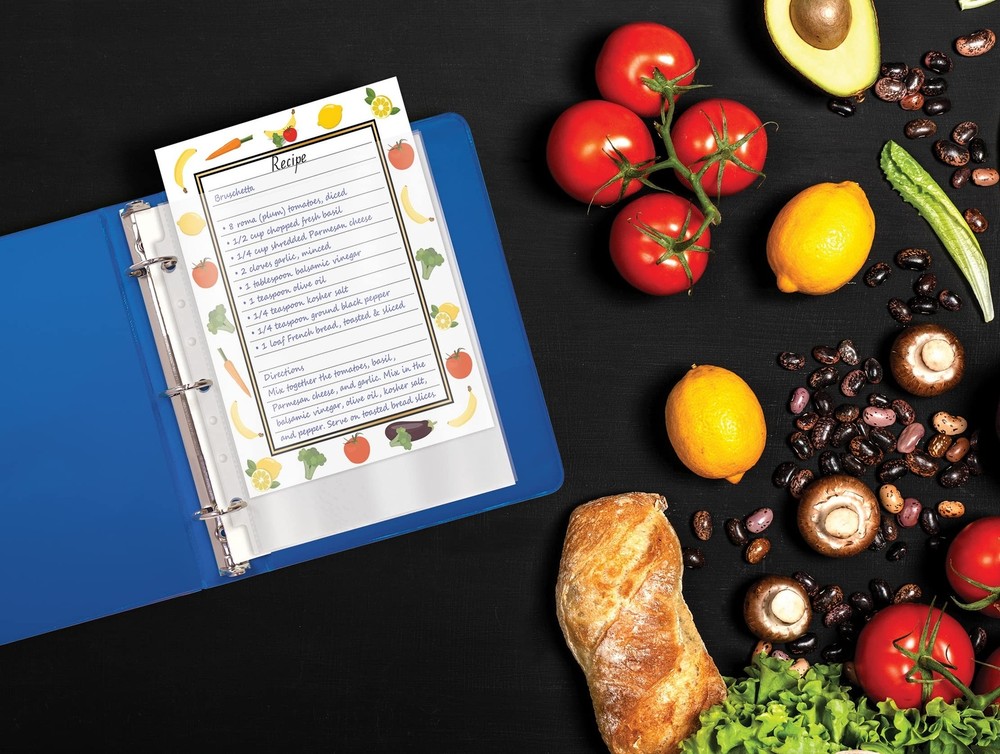 Recipe
Bruschetta
• 8 roma (plum) tomatoes, diced
• 1/2 cup chopped fresh basil
• 1/4 cup shredded Parmesan cheese
• 2 cloves garlic, minced
• 1 tablespoon balsamic vinegar
• 1 teaspoon olive oil
• 1/4 teaspoon kosher salt
• 1/4 teaspoon ground black pepper
• 1 loaf French bread, toasted & sliced
Directions
Mix together the tomatoes, basil,
Parmesan cheese, and garlic. Mix in the
balsamic vinegar, olive oil, kosher salt,
and pepper. Serve on toasted bread slices